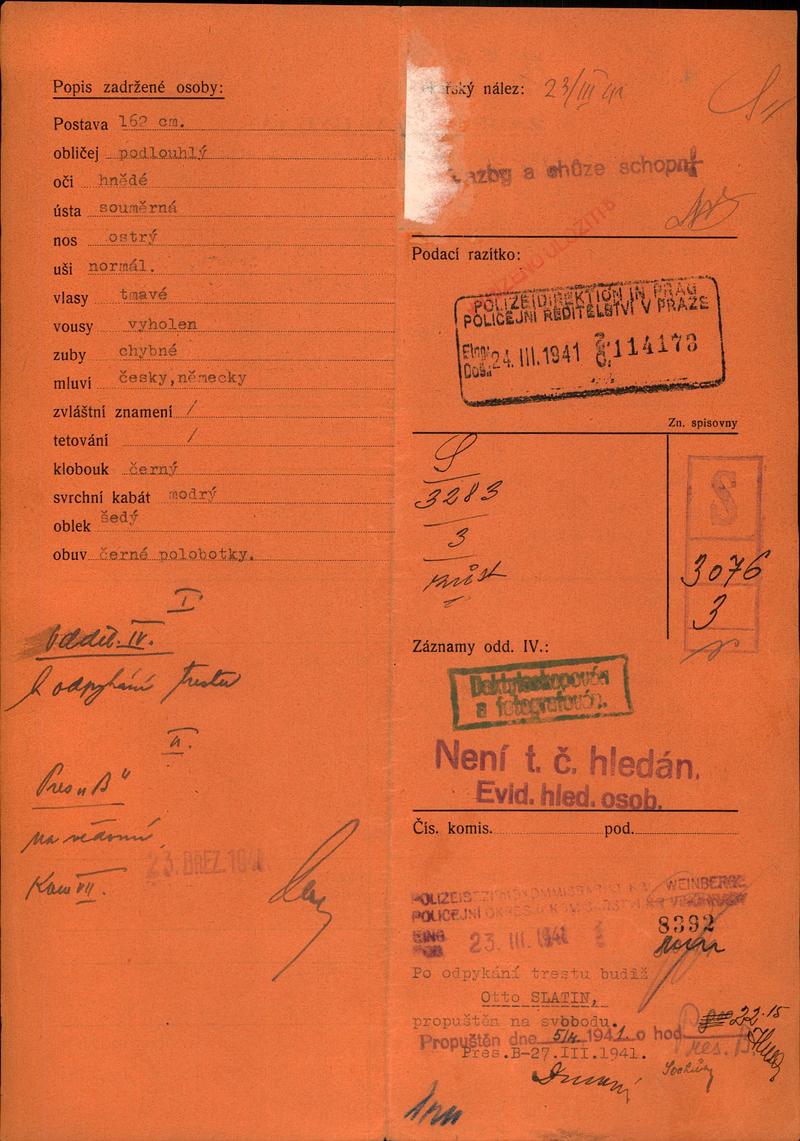 Popis zadržené osoby:
Postava 162 cm.
obličej podlouhlý
oči hnědé
ústa souměrná
nos ostrý
uši normál.
vlasy tmavé
vousy vyholen
zuby chybné
mluví česky,německy
zvláštní znamení /
tetování /
klobouk černý
svrchní kabát modrý
oblek šedý
obuv černé polobotky.
I.
Odděl. IV.
k odpykání trestu
II.
Pres „B"
na vědomí
23. BŘEZ. 1941
Kom VII.
nález: 23/III 41
a chůze schopný
Podací razítko:
POLIZEIDIREKTION IN PRAG
POLICEJNÍ ŘEDITELSTVÍ V PRAZE
Eing.
Došl. 24. III. 1941 114178
Zn. spisovny
S
3283
3
S
3076
3
Záznamy odd. IV.:
Daktyloskopován
a fotografován.
Není t. č. hledán.
Evid. hled. osob.
Čís. komis. pod.
WEINBERGE
POLICEJNÍ
EING
23. III. 1941
8392
Po odpykání trestu budiž
Otto SLATIN,
propuštěn na svobodu.
Propuštěn dne 5/4 1941 o hod 22.15
Pres.B-27.III.1941.
Pres. B